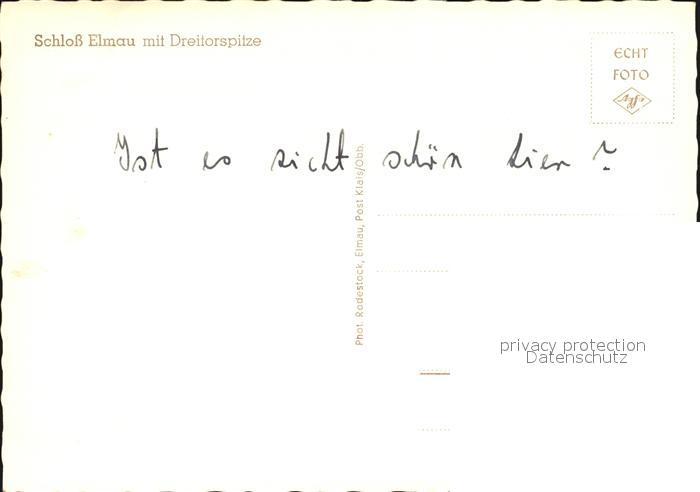 Schloß Elmau mit Dreitorspitze
ECHT
FOTO
Agfa
Ist es nicht schön hier?
Phot. Rodestock, Elmau, Post Klais/Obb.
privacy protection
Datenschutz